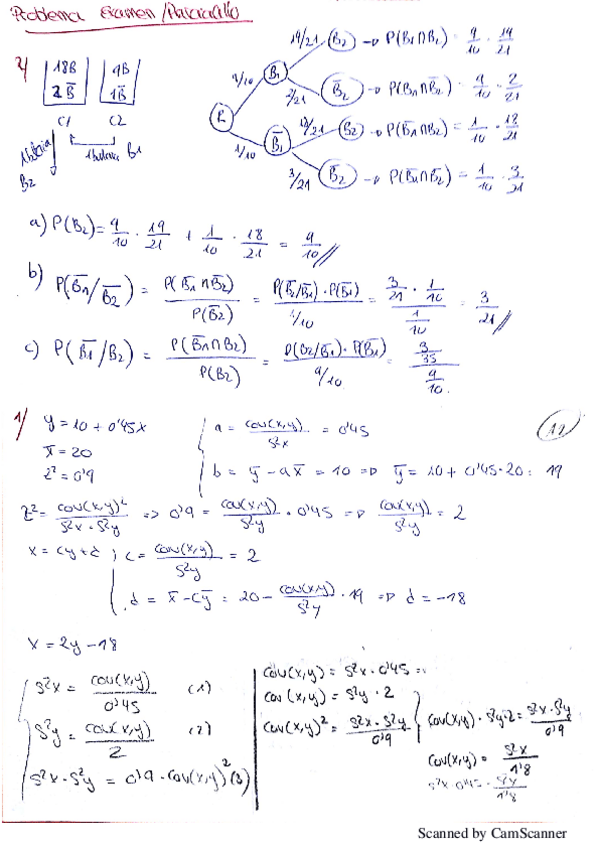 Problema Examen/
2/
18B
2B̅
9B
1B̅
C1
C2
1 bolita B1
B2
R
9/10
1/10
B₁
B̅₁
19/21
2/21
18/21
3/21
B₂ → P(B₁∩B₂) = 9/10 · 19/21
B̅₂ → P(B₁∩B̅₂) = 9/10 · 2/21
B₂ → P(B̅₁∩B₂) = 1/10 · 18/21
B̅₂ → P(B̅₁∩B̅₂) = 1/10 · 3/21
a) P(B₂) = 9/10 · 19/21 + 1/10 · 18/21 = 9/10 //
b) P(B̅₁/B̅₂) = P(B̅₁∩B̅₂)/P(B̅₂) = P(B̅₂/B̅₁)·P(B̅₁)/1/10 = (3/21 · 1/10)/(1/10) = 3/21 //
c) P(B̅₁/B₂) = P(B̅₁∩B₂)/P(B₂) = P(B₂/B̅₁)·P(B̅₁)/9/10 = (3/35)/(9/10)
1/ y = 10 + 0'45x
x̅ = 20
r² = 0'9
a = cov(x,y)/s²x = 0'45
b = y̅ - ax̅ = 10 ⇒ y̅ = 10 + 0'45·20 = 19
19
r² = cov(x,y)²/s²x·s²y ⇒ 0'9 = cov(x,y)/s²y · 0'45 ⇒ cov(x,y)/s²y = 2
x = cy + d ; c = cov(x,y)/s²y = 2
d = x̅ - cy̅ = 20 - cov(x,y)/s²y · 19 ⇒ d = -18
x = 2y - 18
s²x = cov(x,y)/0'45 (1)
s²y = cov(x,y)/2 (2)
s²x · s²y = 0'9 · cov(x,y)² (3)
cov(x,y) = s²x · 0'45
cov(x,y) = s²y · 2
cov(x,y)² = s²x·s²y/0'9
cov(x,y) · s²y·2 = s²x·s²y/0'9
cov(x,y) = s²x/1'8
s²x·0'45 = s²x/1'8
Scanned by CamScanner